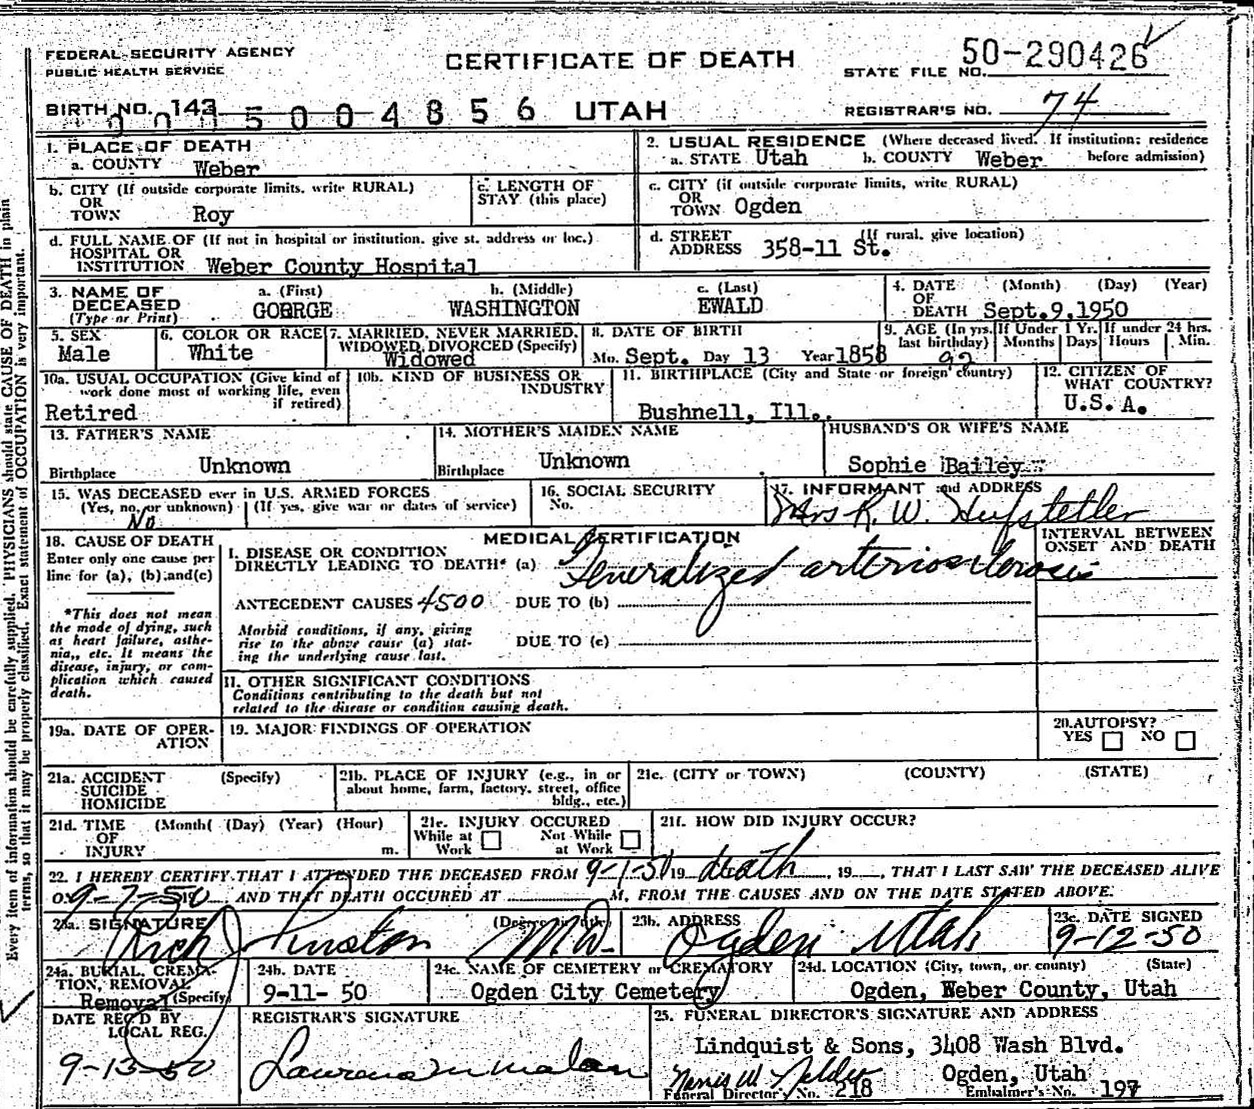 FEDERAL SECURITY AGENCY
PUBLIC HEALTH SERVICE
CERTIFICATE OF DEATH
STATE FILE NO. 50-290426
BIRTH NO. 143
5004856 UTAH
REGISTRAR'S NO. 74
1. PLACE OF DEATH
a. COUNTY Weber
2. USUAL RESIDENCE (Where deceased lived. If institution: residence before admission)
a. STATE Utah b. COUNTY Weber
b. CITY (If outside corporate limits, write RURAL)
OR
TOWN Roy
c. LENGTH OF
STAY (this place)
c. CITY (if outside corporate limits, write RURAL)
OR
TOWN Ogden
d. FULL NAME OF (If not in hospital or institution, give st. address or loc.)
HOSPITAL OR
INSTITUTION Weber County Hospital
d. STREET (If rural, give location)
ADDRESS 358-11 St.
3. NAME OF
DECEASED
(Type or Print)
a. (First) b. (Middle) c. (Last)
GOERGE WASHINGTON EWALD
4. DATE (Month) (Day) (Year)
OF
DEATH Sept.9,1950
5. SEX
Male
6. COLOR OR RACE
White
7. MARRIED, NEVER MARRIED,
WIDOWED, DIVORCED (Specify)
Widowed
8. DATE OF BIRTH
Mo. Sept. Day 13 Year 1858
9. AGE (In yrs. last birthday) 92
If Under 1 Yr.
Months Days
If under 24 hrs.
Hours Min.
10a. USUAL OCCUPATION (Give kind of
work done most of working life, even
if retired)
Retired
10b. KIND OF BUSINESS OR
INDUSTRY
11. BIRTHPLACE (City and State or foreign country)
Bushnell, Ill.
12. CITIZEN OF
WHAT COUNTRY?
U.S.A.
13. FATHER'S NAME
Birthplace Unknown
14. MOTHER'S MAIDEN NAME
Birthplace Unknown
HUSBAND'S OR WIFE'S NAME
Sophie Bailey
15. WAS DECEASED ever in U.S. ARMED FORCES
(Yes, no, or unknown) (If yes, give war or dates of service)
No
16. SOCIAL SECURITY
No.
17. INFORMANT and ADDRESS
Mrs K. W. Hufstetler
18. CAUSE OF DEATH
Enter only one cause per
line for (a), (b) and (c)
*This does not mean
the mode of dying, such
as heart failure, asthe-
nia, etc. It means the
disease, injury, or com-
plication which caused
death.
MEDICAL CERTIFICATION
I. DISEASE OR CONDITION
DIRECTLY LEADING TO DEATH* (a) Generalized arteriosclerosis
INTERVAL BETWEEN
ONSET AND DEATH
ANTECEDENT CAUSES 4500 DUE TO (b)
Morbid conditions, if any, giving
rise to the above cause (a) stat-
ing the underlying cause last.
DUE TO (c)
II. OTHER SIGNIFICANT CONDITIONS
Conditions contributing to the death but not
related to the disease or condition causing death.
19a. DATE OF OPER-
ATION
19. MAJOR FINDINGS OF OPERATION
20. AUTOPSY?
YES NO
21a. ACCIDENT (Specify)
SUICIDE
HOMICIDE
21b. PLACE OF INJURY (e.g., in or
about home, farm, factory, street, office
bldg., etc.)
21c. (CITY or TOWN) (COUNTY) (STATE)
21d. TIME (Month( (Day) (Year) (Hour)
OF
INJURY m.
21e. INJURY OCCURED
While at Work Not While at Work
21f. HOW DID INJURY OCCUR?
22. I HEREBY CERTIFY THAT I ATTENDED THE DECEASED FROM 9-1-50 19 death, 19 , THAT I LAST SAW THE DECEASED ALIVE
ON 9-7-50 AND THAT DEATH OCCURED AT M, FROM THE CAUSES AND ON THE DATE STATED ABOVE.
23a. SIGNATURE (Degree or title)
M.D.
23b. ADDRESS
Ogden Utah
23c. DATE SIGNED
9-12-50
24a. BURIAL, CREMA-
TION, REMOVAL
(Specify)
Removal
24b. DATE
9-11-50
24c. NAME OF CEMETERY or CREMATORY
Ogden City Cemetery
24d. LOCATION (City, town, or county) (State)
Ogden, Weber County, Utah
DATE REC'D BY
LOCAL REG.
9-13-50
REGISTRAR'S SIGNATURE
25. FUNERAL DIRECTOR'S SIGNATURE AND ADDRESS
Lindquist & Sons, 3408 Wash Blvd.
Ogden, Utah
Funeral Director's No. 218 Embalmer's No. 197
Every item of information should be carefully supplied. PHYSICIANS should state CAUSE OF DEATH in plain
terms, so that it may be properly classified. Exact statement of OCCUPATION is very important.